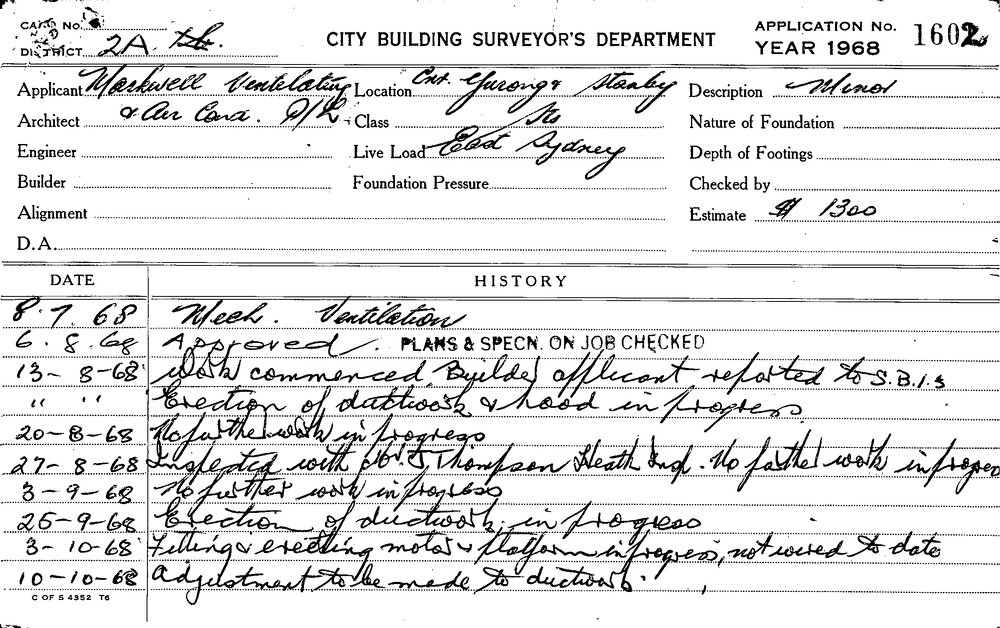 CARD No.
DISTRICT 2A
CITY BUILDING SURVEYOR'S DEPARTMENT
APPLICATION No. 1602
YEAR 1968
Applicant Markwell Ventilating
Location Cnr. Yurong & Stanley
Description Minor
Architect & Air Cond. P/L
Class Sts
Nature of Foundation
Engineer
Live Load East Sydney
Depth of Footings
Builder
Foundation Pressure
Checked by
Alignment
Estimate $ 1300
D.A.
DATE HISTORY
8.7.68 Mech. Ventilation
6.8.68 Approved. PLANS & SPECN. ON JOB CHECKED
13-8-68 Work commenced, Builder applicant reported to S.B.I.s
" " Erection of ductwork & hood in progress
20-8-68 No further work in progress
27-8-68 Inspected with Mr. J Thompson Heath Insp. No further work in progress
3-9-68 No further work in progress
25-9-68 Erection of ductwork in progress
3-10-68 Fitting & erecting motor & platform in progress, not wired to date
10-10-68 Adjustment to be made to ductwork
C OF S 4352 T6